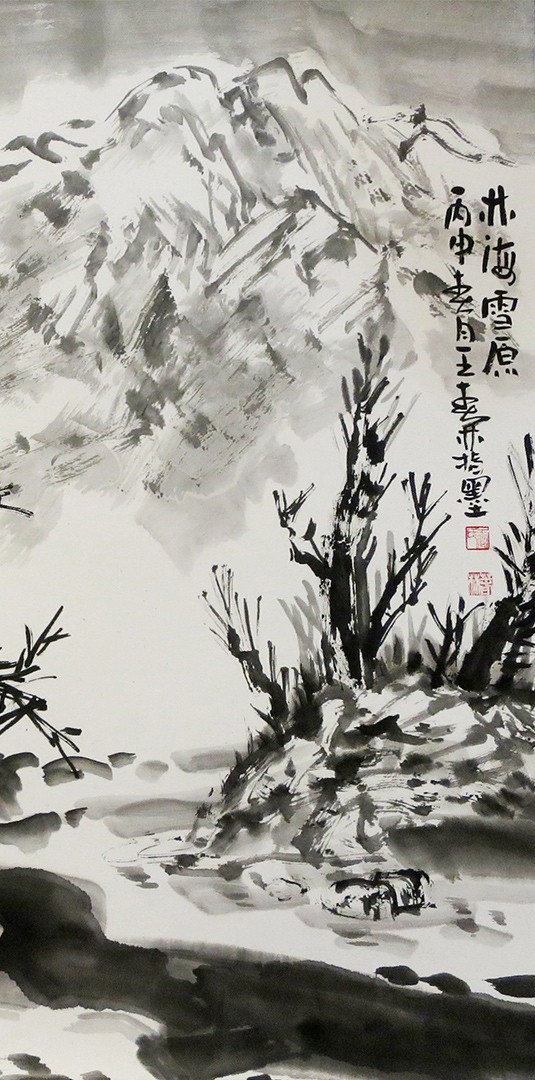 林海雪原
丙申春月王春林指墨